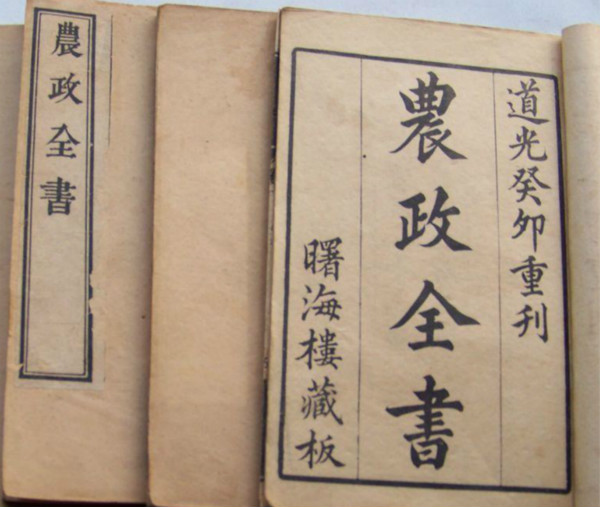 道光癸卯重刊
農政全書
曙海樓藏板
農政全書